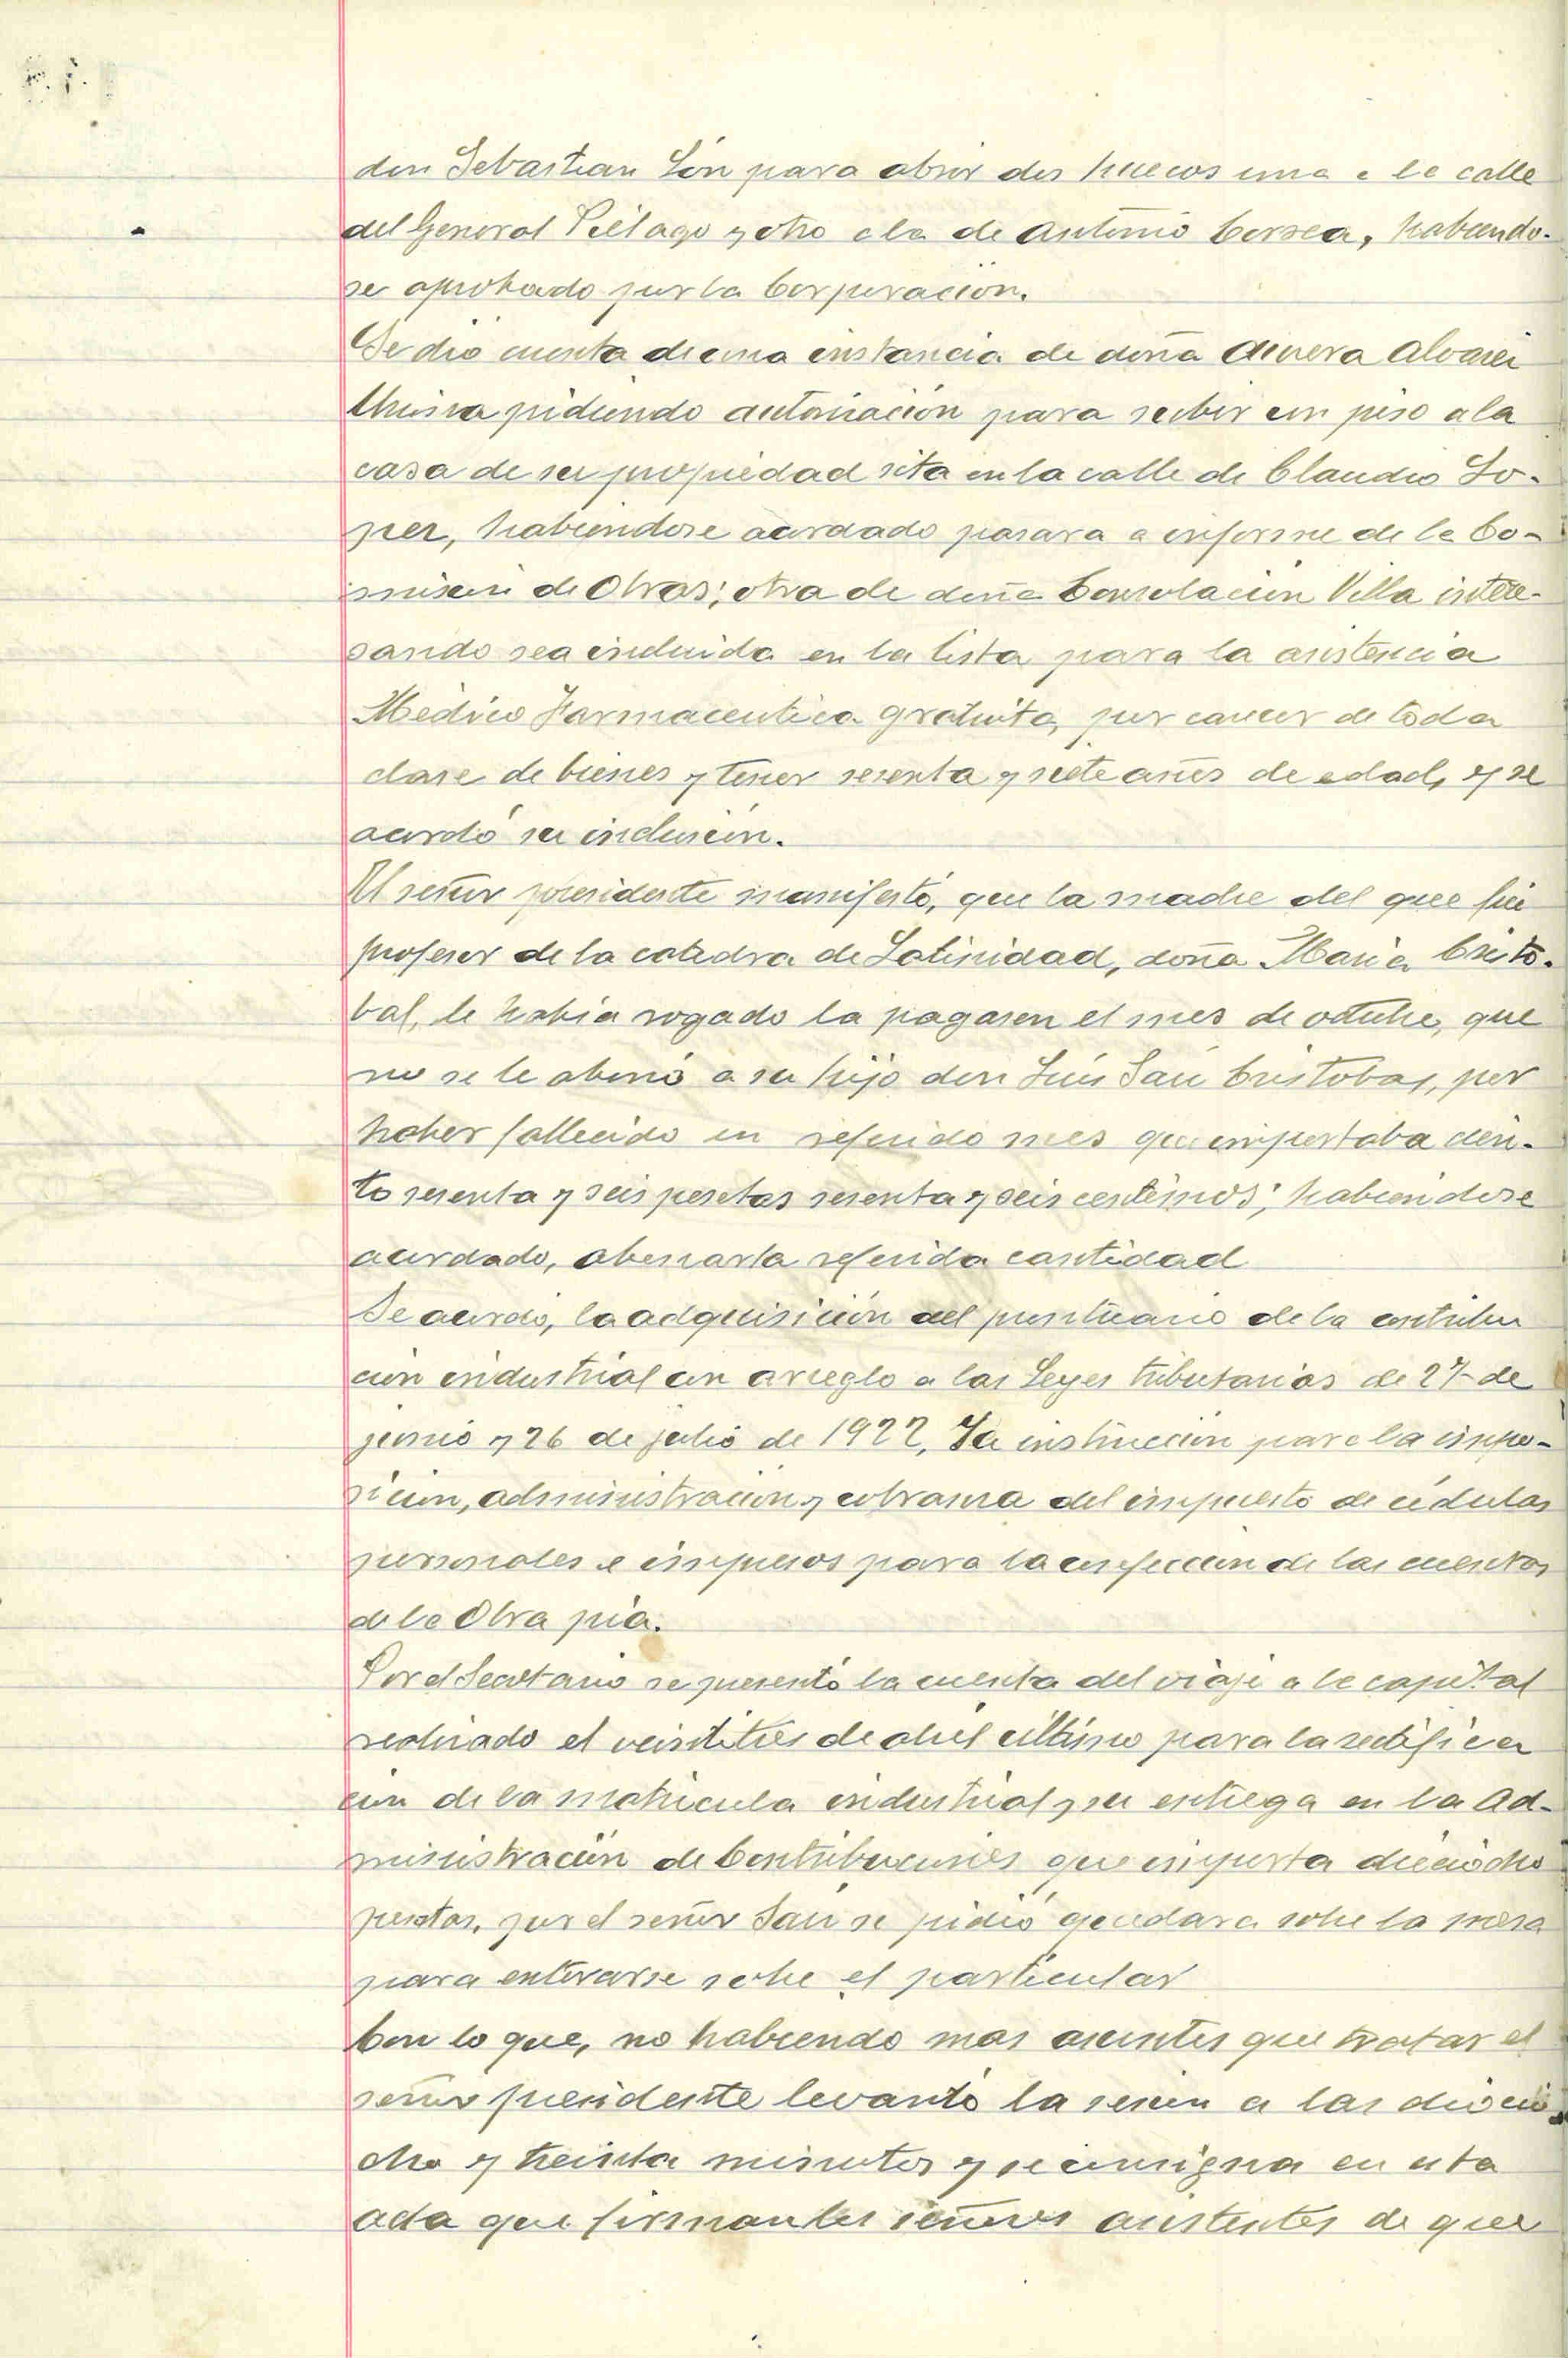 don Sebastian Són para abrir dos huecos una a la calle
del General Piélago y otro a la de Antonio Correa, habiendo-
se aprobado por la Corporación.
Se dió cuenta de una instancia de doña Alvarez
pidiendo autorización para subir un piso a la
casa de su propiedad sita en la calle de Claudio Lo-
pez, habiendose acordado pasara a informe de la Co-
misión de Obras; otra de doña Consolación Villa intere-
sando sea incluida en la lista para la asistencia
Médico Farmaceutica gratuita, por carecer de toda
clase de bienes y tener sesenta y siete años de edad, y se
acordó su inclusión.
El señor presidente manifestó, que la madre del que fué
profesor de la catedra de Latinidad, doña Maria Cristo-
bal, le habia rogado la pagasen el mes de octubre, que
no se le abonó a su hijo don Luis San Cristobal, por
haber fallecido en referido mes que importaba cien-
to sesenta y seis pesetas sesenta y seis centimos; habiendose
acordado, abonarla referida cantidad
Se acordó, la adquisición del prontuario de la contribu
ción industrial con arreglo a las Leyes tributarias de 27 de
junio y 26 de julio de 1922, La instrucción para la impo-
sición, administración y cobranza del impuesto de cédulas
personales e impresos para la confección de las cuentas
de la Obra pia.
Por el Secretario se presentó la cuenta del viaje a la capital
realizado el veintitrés de abril último para la rectifica
ción de la matricula industrial y su entrega en la Ad-
ministración de Contribuciones que importa dieciocho
pesetas, por el señor San se pidió quedara sobre la mesa
para enterarse sobre el particular
Con lo que, no habiendo mas asuntos que tratar el
señor presidente levantó la sesión a las diecio
cho y treinta minutos y se consigna en esta
acta que firman los señores asistentes de que